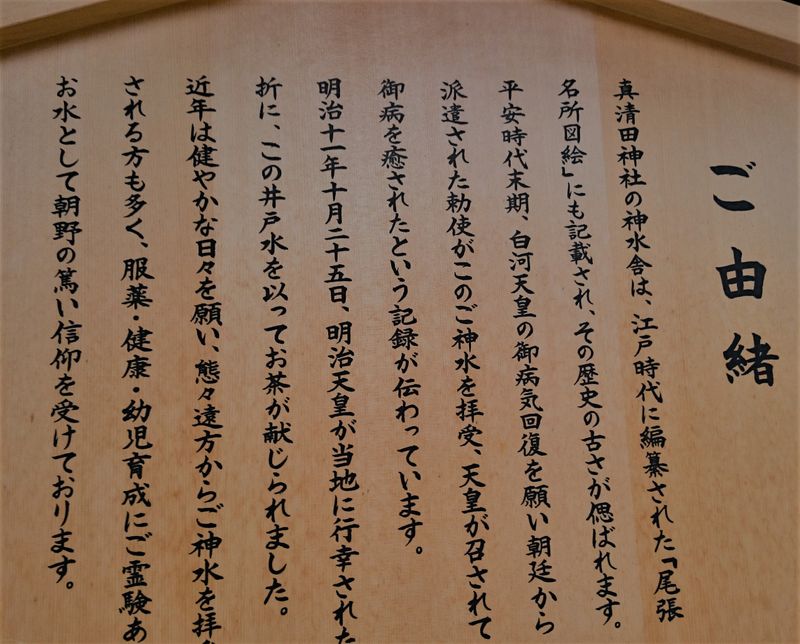 ご由緒
真清田神社の神水舎は、江戸時代に編纂された「尾張
名所図絵」にも記載され、その歴史の古さが偲ばれます。
平安時代末期、白河天皇の御病気回復を願い朝廷から
派遣された勅使がこのご神水を拝受、天皇が召されて
御病を癒されたという記録が伝わっています。
明治十一年十月二十五日、明治天皇が当地に行幸された
折に、この井戸水を以ってお茶が献じられました。
近年は健やかな日々を願い、態々遠方からご神水を拝
される方も多く、服薬・健康・幼児育成にご霊験あ
お水として朝野の篤い信仰を受けております。